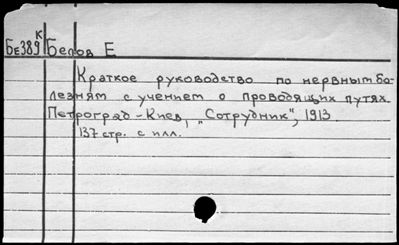 Бе389 К Белов Е
Краткое руководство по нервным бо-
лезням с учением о проводящих путях.
Петроград-Киев, "Сотрудник", 1913.
137 стр. с илл.